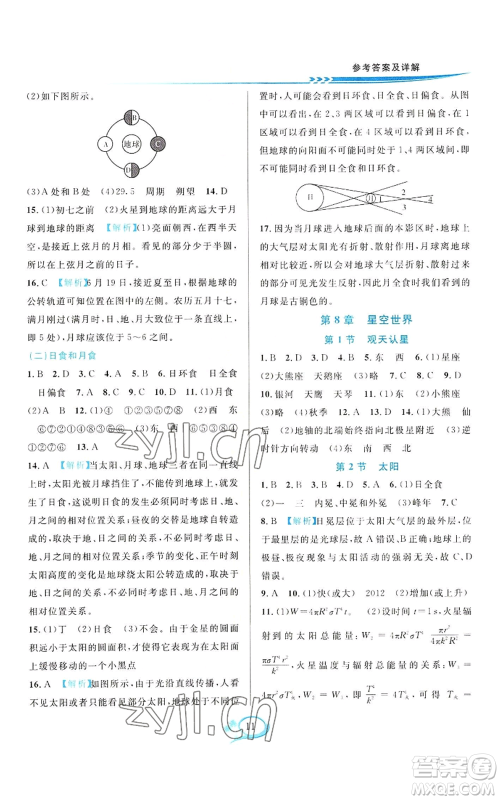 参考答案及详解
(2)如下图所示。
B
A 地球 C
D
(3)A处和B处 (4)29.5 周期 朔望 14.D
15.(1)初七之前 (2)火星到地球的距离远大于月
球到地球的距离【解析】(1)交面朝西,在西半天
空,是接近上弦月的月相。它看起来少于半圆,
是接近上弦月之前的日子。
16.C 【解析】6月19日,接近夏至日,根据地球的
公转轨道可知位置在二的左侧。农历五月十七,
满月刚过,月球处于西南侧,正向下弦月方向转
动,即5处,故月球位置应为5~6之间。
(二)日食和月食
1.B 2.D 3.C 4.A 5.C 6.日全食 日环食
日偏食 7.C 8.A 9.B 10.C 11.D
12.(2)东 ①②③④⑤⑥⑦⑧ (3)西
①⑧⑦⑥⑤④③② 13.A
14.A 【解析】当太阳、月球、地球三者在同一直线
上时,太阳光被月球挡住了,不能射到地球上来,
发生的就是日食,日食的成因需要考虑日、地、
月三者之间的相对位置关系;月食的成因需要
考虑日、地、月三者之间的相对位置关系;月相
的成因是月球绕地球公转,需要考虑日、地、月三
者之间的相对位置关系;昼夜的变化是地球自
转,无需考虑相对位置关系;季节的变化、正午
太阳高度的变化是地球绕太阳转动,不需要考
虑日、地、月三者之间的相对位置关系,故A项
相对位置关系。
15.(1)丁 (2)日食 (3)由于金星的圆面积
小于太阳的圆面积,所以人们看到太阳圆面上有
缓慢移动的一个小黑点
16.A 【解析】如图所示,由于光沿直线传播,可能
看不到太阳或者只能看见部分太阳,处于不同位
置时,人可能会看到日环食、日全食、日偏食。从图
中可以看出,在2、3两区域可以看到日偏食,在
1区域可以看到日全食,在4区域可以看到日环食,
但地球的向阳面不可能同时处于1、4两区域,所以
不可能同时看到日环食和日全食。
日
1
2
3
4
17.因为当月球进入地球的本影区时,地球上
的大气层对太阳光折射、散射作用,月球上
呈现微弱的古铜色的光,所以我们看到的
月球是古铜色的。
第8章 星空世界
第1节 观天认星
1.B 2.D 3.C 4.B 5.东 西 (2)小熊座
(2)大熊座 天鹅座 (3)B 6.D 7.C 8.D
9.D 10.银河 天鹰 天琴 11.(1)小熊座
(2)略 (3)略 (4)秋季 12.(1)D (2)仙
后座 (2)地轴的北端始终指向北极星附近 (3)逆
时针方向转动 (4)东 南 西 北
第2节 太阳
1.A 2.C 3.C 4.D 5.A 6.C
7.(2)一 三 内冕、中冕和外冕 (3)峰年
8.B 【解析】日冕层位于太阳大气层的最外层,
故A错误,B正确;太阳活动影响地球上的
极昼、极夜现象与太阳活动的强弱无关,故C、
D错误。
9.A 10.(1)快(或大) 2012 (2)增加(或上升)
11.(1)W=4πR²σT⁴t。 (2)时间t=1s,火星
接收到的太阳总能量:W₂=4πR²σT⁴
πσT⁴r²/k²,火星温度与辐射总能量的关系:W₁=
4πr²σT火⁴,W₂=W₁,即T⁴/k²=4T火⁴,可得
11